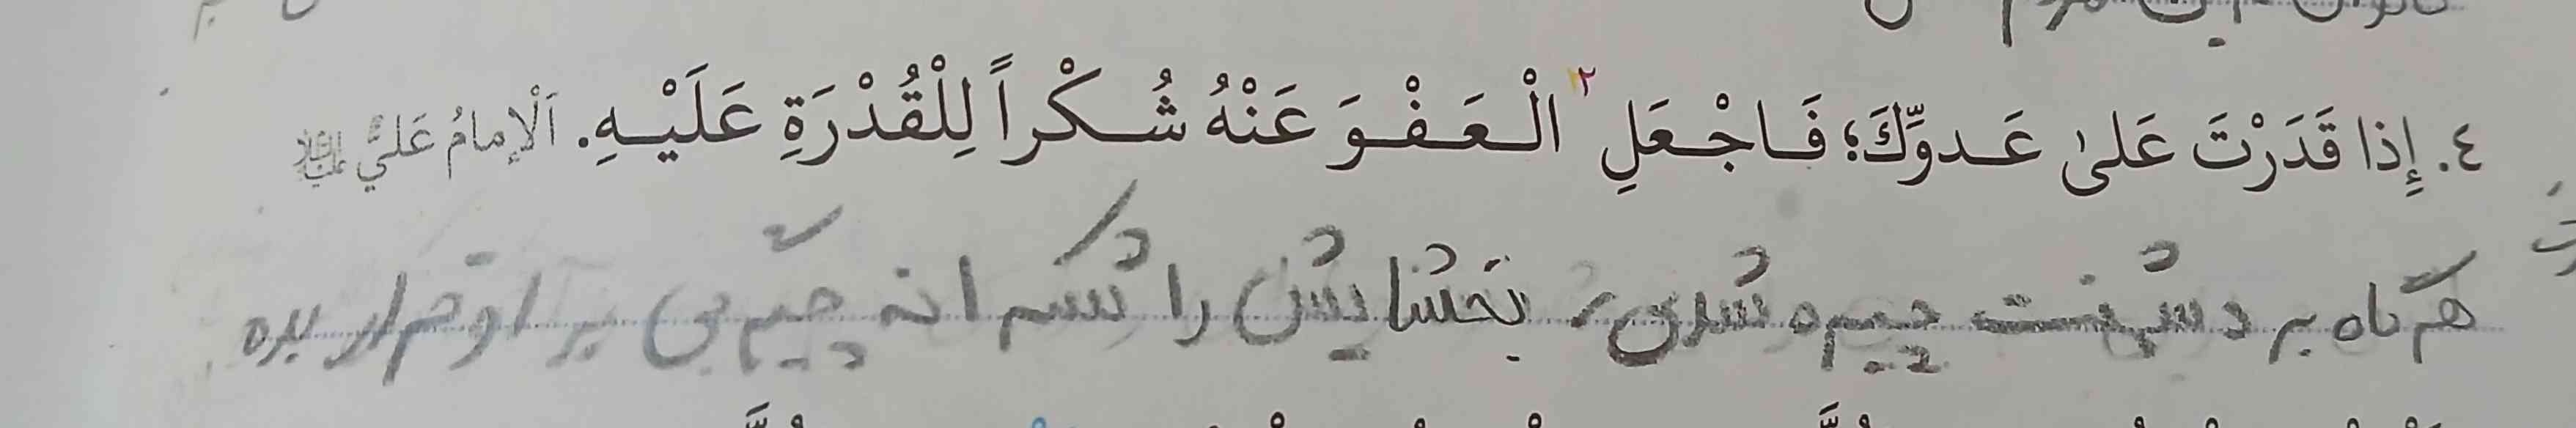 ٤. إِذا قَدَرْتَ عَلىٰ عَـدوِّكَ؛ فَـاجْعَلِ ٢ الْـعَـفْـوَ عَنْهُ شُـكْراً لِلْقُدْرَةِ عَلَيْـهِ. اَلْإمامُ عَليٌّ
هرگاه بر دشمنت چیره شدی، بخشایش را شکرانه چیرگی بر او قرار بده